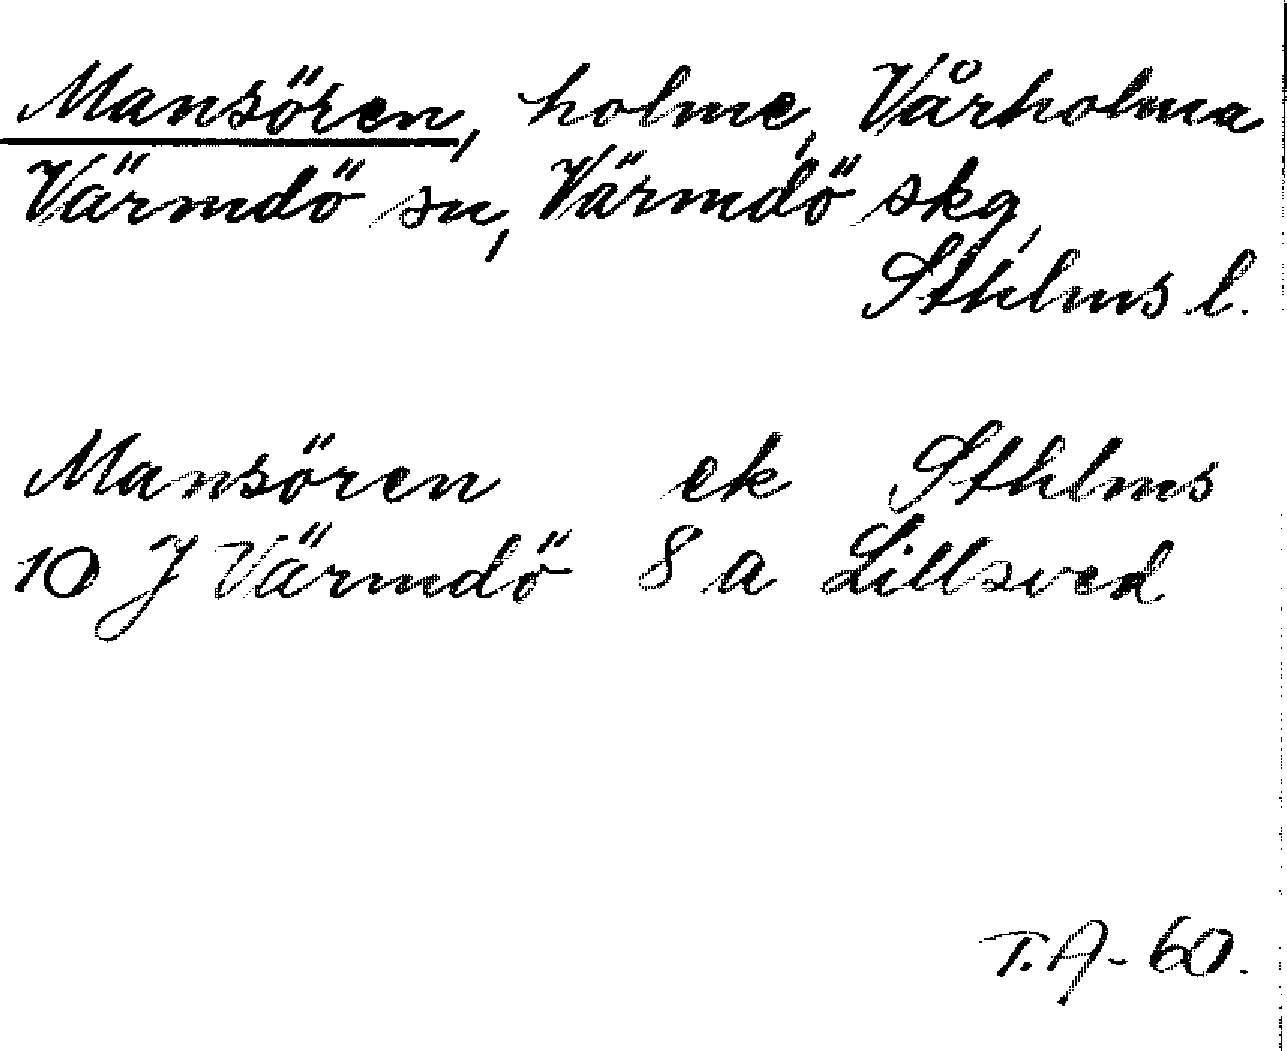 Mansören, holme, Vårholma
Värmdö sn, Värmdö skg,
Sthlms l.
Mansören ek Sthlms
10 J Värmdö 8 a Lillsved
T.A-60.